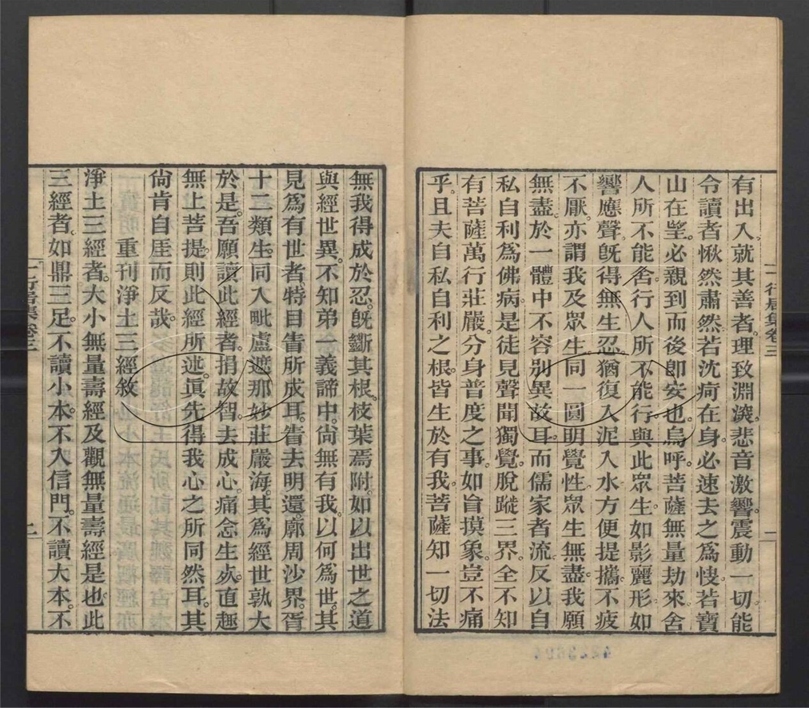 有出入就其善者理致淵漪悲音激響震動一切能
令讀者愀然肅然若沈痾在身必速去之為快若寶
山在望必親到而後卽安也烏呼菩薩無量劫來舍
人所不能舍行人所不能行與此眾生如影麗形如
響應聲旣得無生忍猶復入泥入水方便提攜不疲
不厭亦謂我及眾生同一圓明覺性眾生無盡我願
無盡於一體中不容別異故耳而儒家者流反以自
私自利為佛病是徒見聲聞獨覺脫蹤三界全不知
有菩薩萬行莊嚴分身普度之事如盲摸象豈不痛
乎且夫自私自利之根皆生於有我菩薩知一切法
一行居集卷三
二
無我得成於忍旣斷其根枝葉焉附如以出世之道
與經世異不知弟一義諦中尙無有我以何為世其
見為有世者特目眚所成耳眚去明還廓周沙界胥
十二類生同入毗盧遮那妙莊嚴海其為經世孰大
於是吾願讀此經者捐故智去成心痛念生死直趣
無上菩提則此經所述眞先得我心之所同然耳其
尙肯自厓而反哉
重刊淨土三經敘
淨土三經者大小無量壽經及觀無量壽經是也此
三經者如鼎三足不讀小本不入信門不讀大本不
一行居集卷三